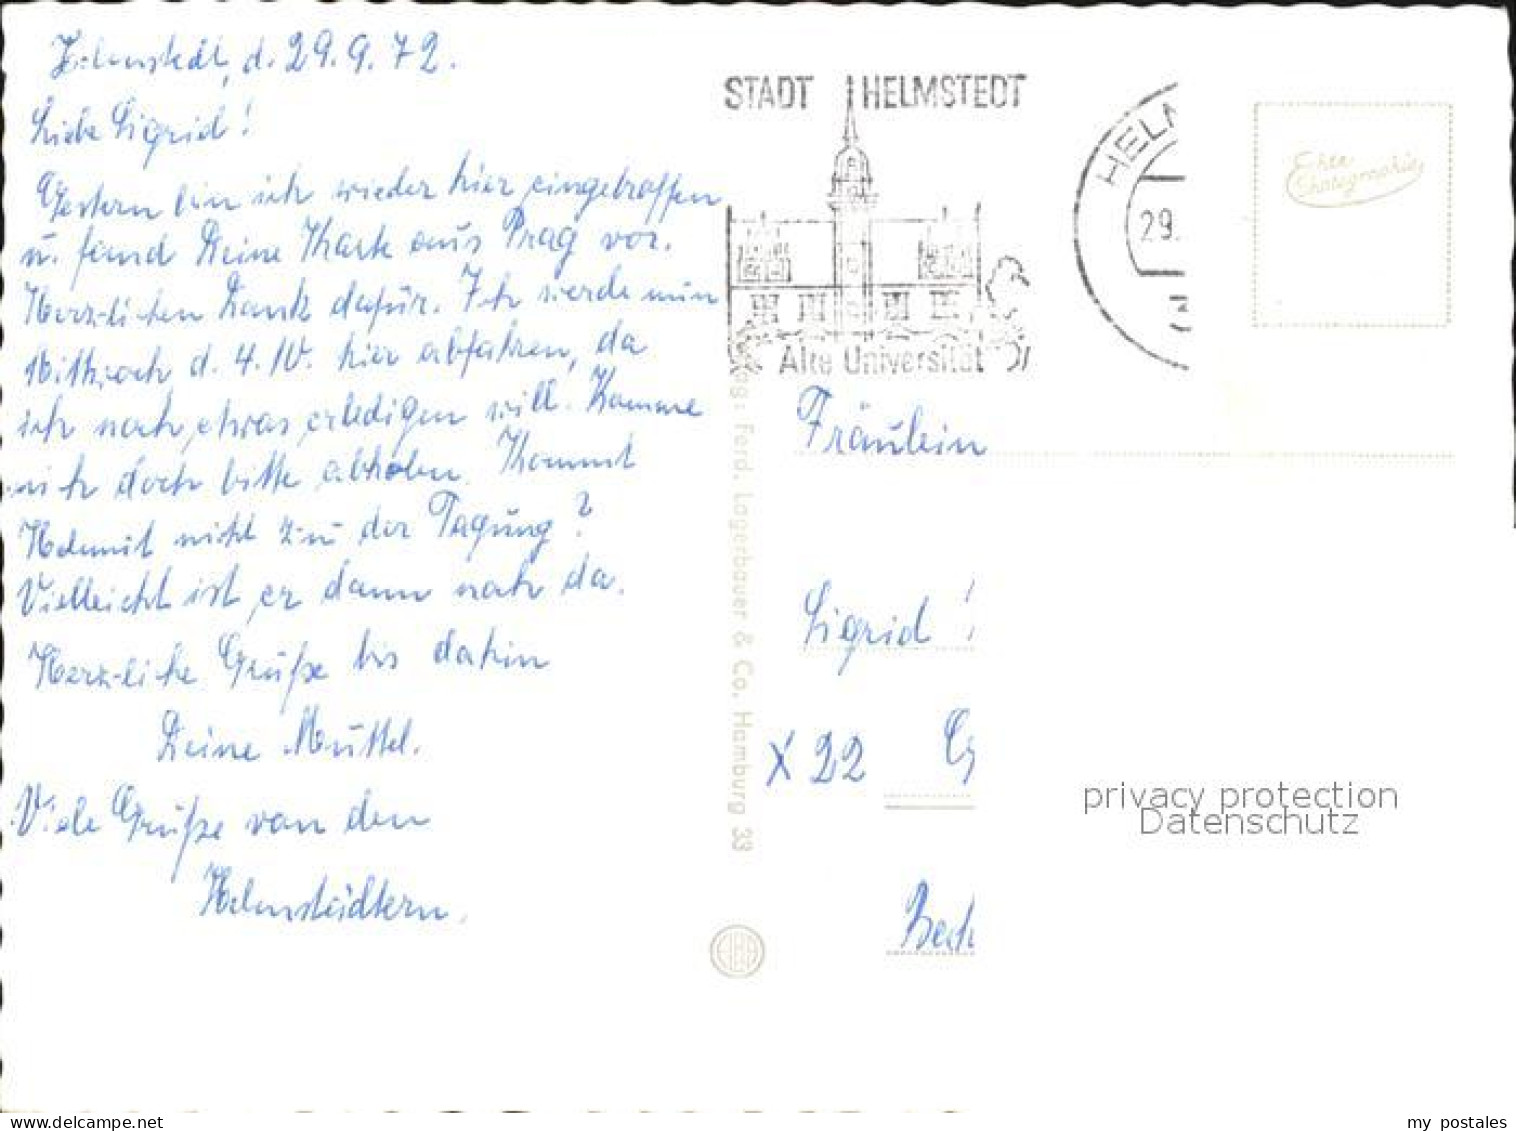 Helmstedt, d. 29.9.72.
Liebe Sigrid!
Gestern bin ich wieder hier eingetroffen
u. fand Deine Karte aus Prag vor.
Herzlichen Dank dafür. Ich werde nun
Mittwoch d. 4.10. hier abfahren, da
ich noch etwas erledigen will. Komme
mich doch bitte abholen. Kommt
Helmut nicht zu der Tagung?
Vielleicht ist er dann noch da.
Herzliche Grüße bis dahin
Deine Muttel.
Viele Grüße von den
Helmstädtern.
STADT HELMSTEDT
Alte Universität
HELM
29.
Echte
Photographie
Fräulein
Sigrid!
X 22 G
Beck
Verlag: Ferd. Lagerbauer & Co. Hamburg 33
privacy protection
Datenschutz
www.delcampe.net
my postales